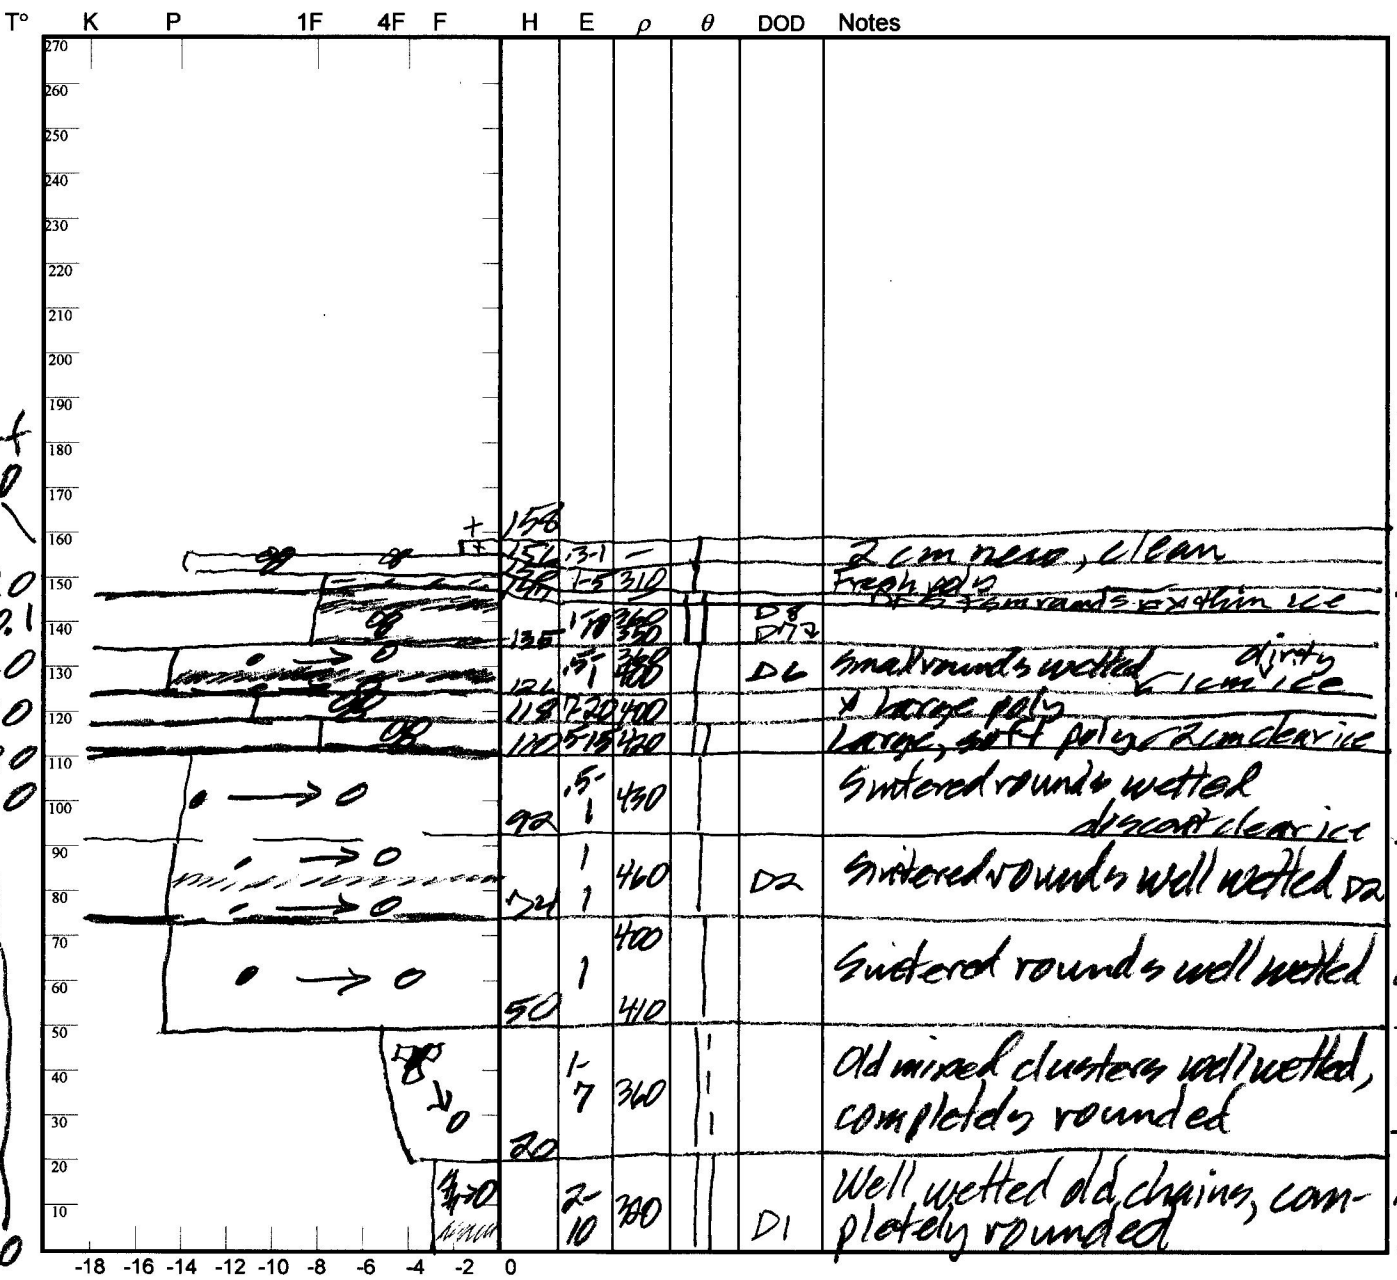 T° K P 1F 4F F H E ρ θ DOD Notes
270
260
250
240
230
220
210
200
190
180
170
160
150
140
130
120
110
100
90
80
70
60
50
40
30
20
10
158
.3-1 – 2 cm new, clean
1-5 310 Fresh poly
D8
135 350
.5-1 400 D6 Small rounds wetted dirty
1cm ice
118 7-20 400 Large poly
110 5-15 420 Large, soft poly 2cm clear ice
.5-1 430 Sintered rounds wetted
92 discont clear ice
1 460 D2 Sintered rounds well wetted D2
74 1
400
1 Sintered rounds well wetted
50 410
1-7 360 Old mixed clusters well wetted,
completely rounded
20
2-10 D1 Well wetted old chains, com-
pletely rounded
-18 -16 -14 -12 -10 -8 -6 -4 -2 0